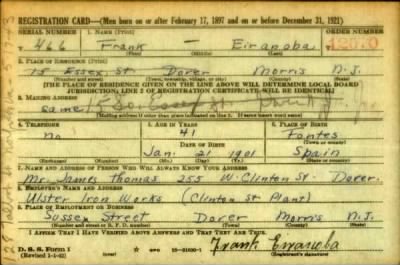 REGISTRATION CARD—(Men born on or after February 17, 1897 and on or before December 31, 1921)
SERIAL NUMBER 1. NAME (Print) ORDER NUMBER
466 Frank — Eiranoba
2. PLACE OF RESIDENCE (Print)
15 Essex St Dover Morris N.J.
(Number and street) (Town, township, village, or city) (County) (State)
[THE PLACE OF RESIDENCE GIVEN ON THE LINE ABOVE WILL DETERMINE LOCAL BOARD
JURISDICTION; LINE 2 OF REGISTRATION CERTIFICATE WILL BE IDENTICAL]
3. MAILING ADDRESS
Same
[Mailing address if other than place indicated on line 2. If same insert word same]
4. TELEPHONE 5. AGE IN YEARS 6. PLACE OF BIRTH
no 41 Fontes
DATE OF BIRTH (Town or county)
Jan. 21 1901 Spain
(Exchange) (Number) (Mo.) (Day) (Yr.) (State or country)
7. NAME AND ADDRESS OF PERSON WHO WILL ALWAYS KNOW YOUR ADDRESS
Mr. James Thomas 255 W. Clinton St. Dover.
8. EMPLOYER'S NAME AND ADDRESS
Ulster Iron Works (Clinton St Plant)
9. PLACE OF EMPLOYMENT OR BUSINESS
Sussex Street Dover Morris N.J.
(Number and street or R. F. D. number) (Town) (County) (State)
I AFFIRM THAT I HAVE VERIFIED ABOVE ANSWERS AND THAT THEY ARE TRUE.
D. S. S. Form 1
(Revised 1-1-42)
Frank Eiranoba
(Registrant's signature)